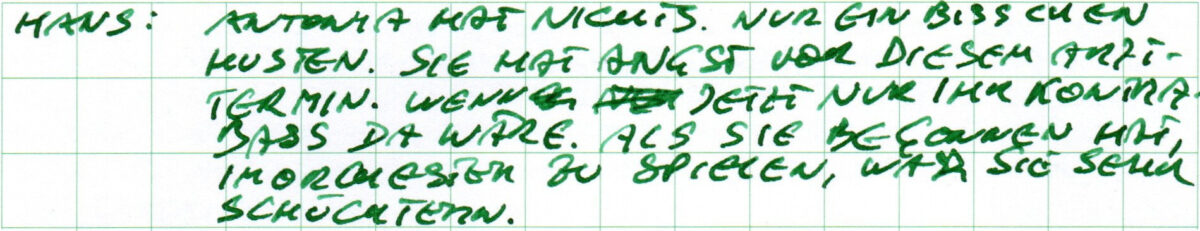 HANS: ANTONIA HAT NICHTS. NUR EIN BISSCHEN
HUSTEN. SIE HAT ANGST VOR DIESEM ARZT-
TERMIN. WENN JETZT NUR IHR KONTRA-
BASS DA WÄRE. ALS SIE BEGONNEN HAT,
IM ORCHESTER ZU SPIELEN, WAR SIE SEHR
SCHÜCHTERN.